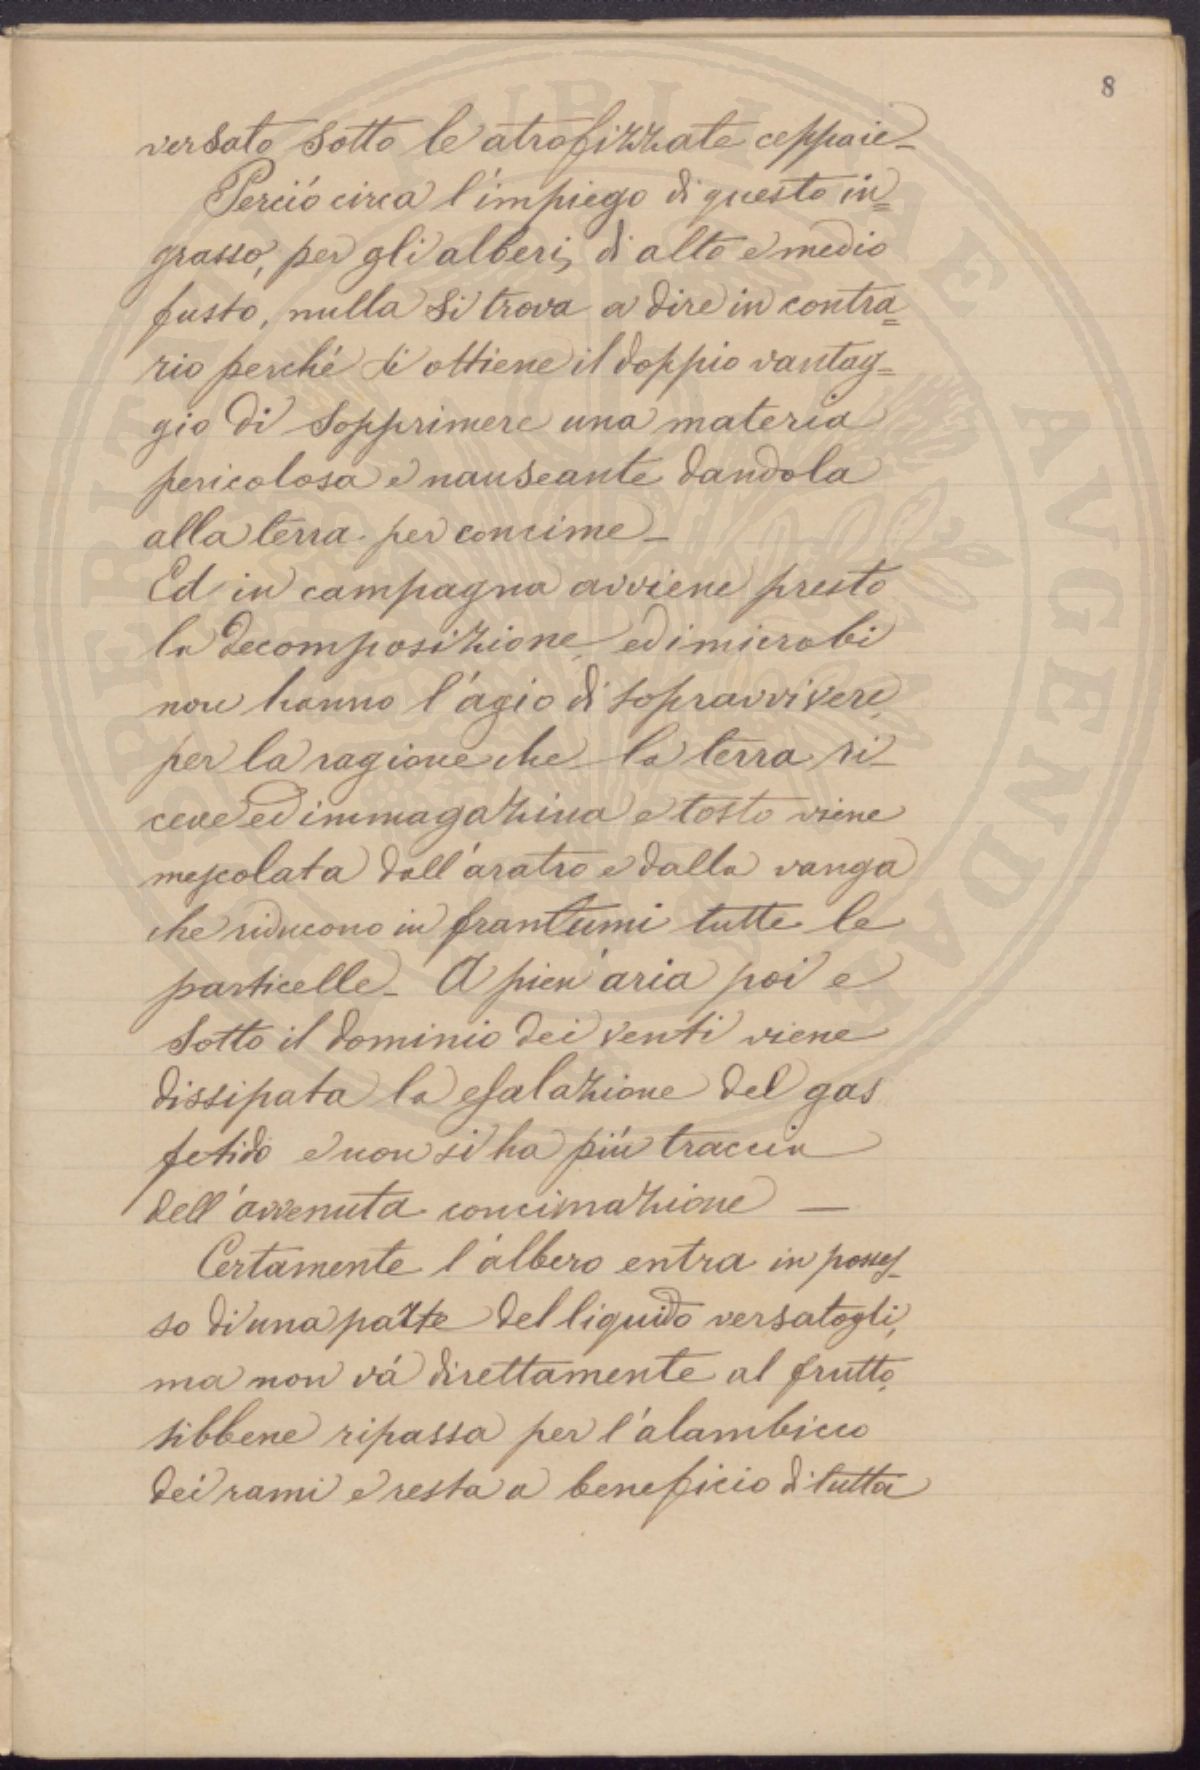 8
versato sotto le atrofizzate ceppaie_
Perció circa l'impiego di questo in=
grasso, per gli alberi, di alto e medio
fusto, nulla si trova a dire in contra=
rio perché si ottiene il doppio vantag=
gio di sopprimere una materia
pericolosa e nauseante dandola
alla terra per concime_
Ed in campagna avviene presto
la decomposizione, ed i microbi
non hanno l'agio di sopravvivere,
per la ragione che la terra ri_
ceve ed immagazina e tosto viene
mescolata dall'aratro e dalla vanga
che riducono in frantumi tutte le
particelle_ A pien'aria poi e
sotto il dominio dei venti viene
dissipata la esalazione del gas
fetido e non si ha piú traccia
dell'avvenuta concimazione —
Certamente l'albero entra in posses_
so di una parte del liquido versatogli,
ma non vá direttamente al frutto,
sibbene ripassa per l'alambicco
dei rami e resta a beneficio di tutta
PERITAE
PUBLICAE
AVGENDAE
PROSPERITATI